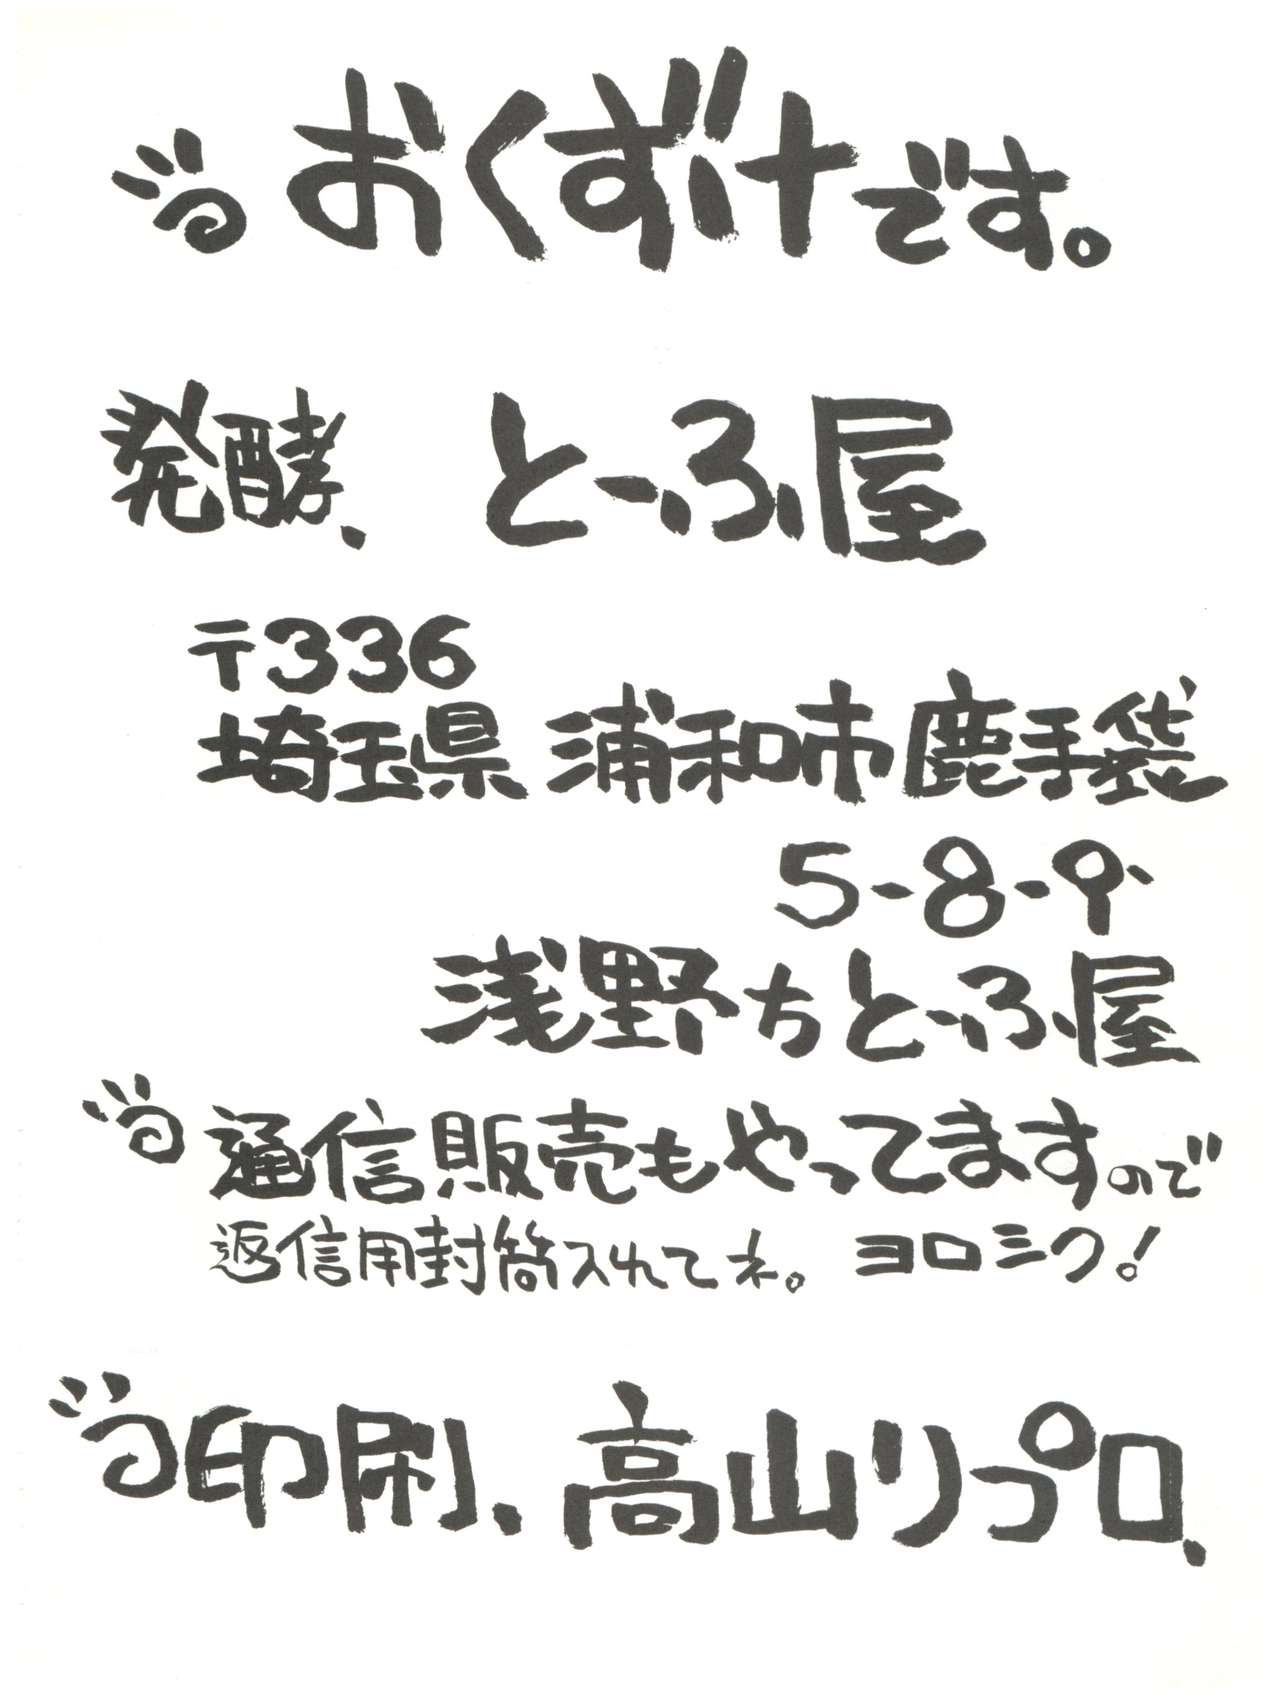 おくずけです。
発酵、とーふ屋
〒336
埼玉県 浦和市 鹿手袋
5-8-9-
浅野方とーふ屋
通信販売もやってますので
返信用封筒入れてネ。 ヨロシク!
印刷、高山リプロ、